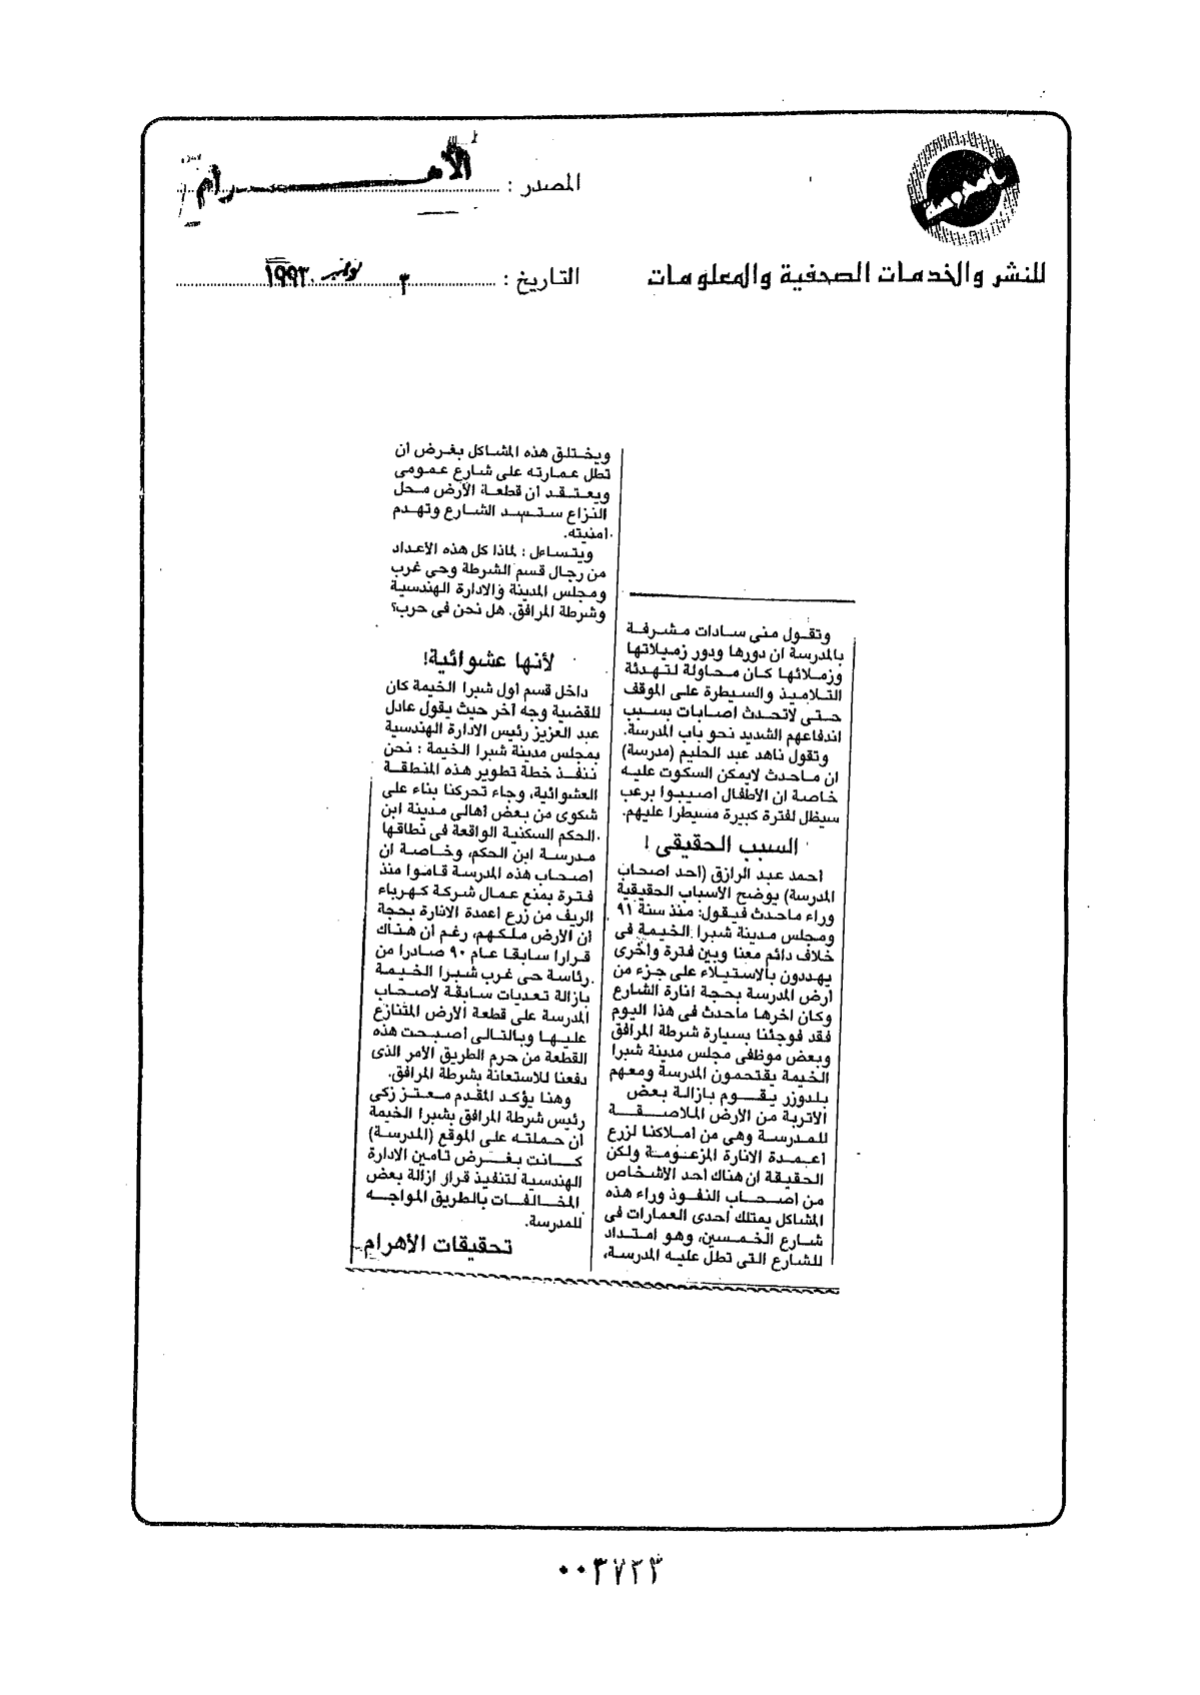 المصدر : الأهـــرام
للنشر والخدمات الصحفية والمعلومات
التاريخ : ٣ نوفمبر ١٩٩٣
وتقول منى سادات مشرفة
بالمدرسة ان دورها ودور زميلاتها
وزملائها كان محاولة لتهدئة
التلاميذ والسيطرة على الموقف
حتى لاتحدث اصابات بسبب
اندفاعهم الشديد نحو باب المدرسة.
وتقول ناهد عبد الحليم (مدرسة)
ان ماحدث لايمكن السكوت عليه
خاصة ان الأطفال اصيبوا برعب
سيظل لفترة كبيرة مسيطرا عليهم.
السبب الحقيقى !
احمد عبد الرازق (احد اصحاب
المدرسة) يوضح الأسباب الحقيقية
وراء ماحدث فيقول: منذ سنة ٩١
ومجلس مدينة شبرا الخيمة فى
خلاف دائم معنا وبين فترة وأخرى
يهددون بالاستيلاء على جزء من
أرض المدرسة بحجة انارة الشارع
وكان اخرها ماحدث فى هذا اليوم
فقد فوجئنا بسيارة شرطة المرافق
وبعض موظفى مجلس مدينة شبرا
الخيمة يقتحمون المدرسة ومعهم
بلدوزر يقوم بازالة بعض
الاتربة من الارض الملاصقة
للمدرسة وهى من املاكنا لزرع
اعمدة الانارة المزعومة ولكن
الحقيقة ان هناك أحد الاشخاص
من اصحاب النفوذ وراء هذه
المشاكل يمتلك احدى العمارات فى
شارع الخمسين، وهو امتداد
للشارع التى تطل عليه المدرسة،
ويختلق هذه المشاكل بغرض ان
تطل عمارته على شارع عمومى
ويعتقد ان قطعة الأرض محل
النزاع ستسد الشارع وتهدم
امنيته.
ويتساءل : لماذا كل هذه الأعداد
من رجال قسم الشرطة وحى غرب
ومجلس المدينة والادارة الهندسية
وشرطة المرافق. هل نحن فى حرب؟
لأنها عشوائية!
داخل قسم أول شبرا الخيمة كان
للقضية وجه آخر حيث يقول عادل
عبد العزيز رئيس الادارة الهندسية
بمجلس مدينة شبرا الخيمة : نحن
ننفذ خطة تطوير هذه المنطقة
العشوائية، وجاء تحركنا بناء على
شكوى من بعض أهالى مدينة ابن
الحكم السكنية الواقعة فى نطاقها
مدرسة ابن الحكم، وخاصة ان
أصحاب هذه المدرسة قاموا منذ
فترة بمنع عمال شركة كهرباء
الريف من زرع اعمدة الانارة بحجة
أن الأرض ملكهم، رغم أن هناك
قرارا سابقا عام ٩٠ صادرا من
رئاسة حى غرب شبرا الخيمة
بازالة تعديات سابقة لأصحاب
المدرسة على قطعة الأرض المتنازع
عليها وبالتالى أصبحت هذه
القطعة من حرم الطريق الأمر الذى
دفعنا للاستعانة بشرطة المرافق.
وهنا يؤكد المقدم معتز زكى
رئيس شرطة المرافق بشبرا الخيمة
أن حملته على الموقع (المدرسة)
كانت بغرض تأمين الادارة
الهندسية لتنفيذ قرار ازالة بعض
المخالفات بالطريق المواجه
للمدرسة.
تحقيقات الأهرام
٠٠٣٧٢٣